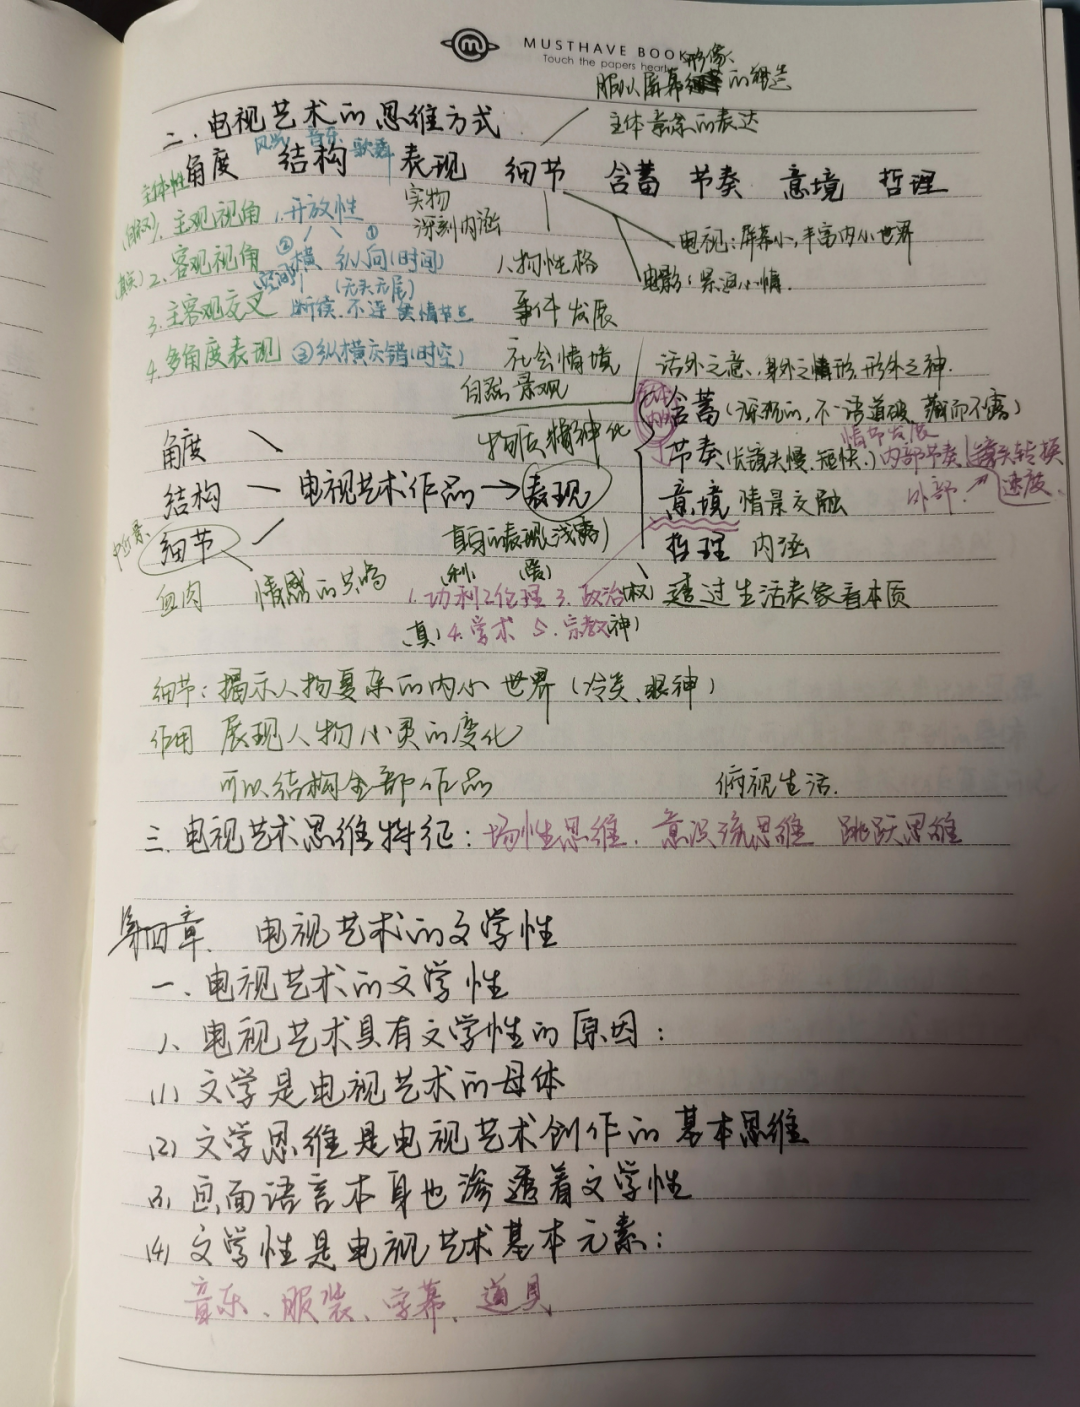 MUSTHAVE BOOK
Touch the papers heart
形象
服从屏幕的塑造
主体意象的表达
二、电视艺术的思维方式
风光 音乐 歌舞
角度 结构 表现 细节 含蓄 节奏 意境 哲理
主体性
1.主观视角 1.开放性
实物
深刻内涵
电视:屏幕小,丰富内心世界
2.客观视角 ②横 ①纵向(时间)
空间
(无头无尾)
人物性格
3.主客观交叉 断续 不连 情节点
事件发展
4.多角度表现 ③纵横交错(时空)
社会情境
自然景观
话外之意、身外之情形,形外之神.
含蓄(深沉的,不一语道破,藏而不露)
物质精神化
情节发展
节奏(长镜头慢,短快.)内部节奏 镜头转换
外部. 速度
角度
结构 电视艺术作品→表现
意境 情景交融
细节
直白的表现(浅露)
哲理 内涵
血肉 情感的共鸣
(利) (善)
1.功利2.伦理 3.政治(权) 透过生活表象看本质
(真)4.学术 5.宗教(神)
细节:揭示人物复杂的内心世界(冷笑、眼神)
作用 展现人物心灵的变化
可以结构全部作品 俯视生活.
三.电视艺术思维特征:场性思维.意识流思维 跳跃思维
第四章、电视艺术的文学性
一、电视艺术的文学性
1、电视艺术具有文学性的原因:
(1)文学是电视艺术的母体
(2)文学思维是电视艺术创作的基本思维
(3)画面语言本身也渗透着文学性
(4)文学性是电视艺术基本元素:
音乐、服装、字幕、道具